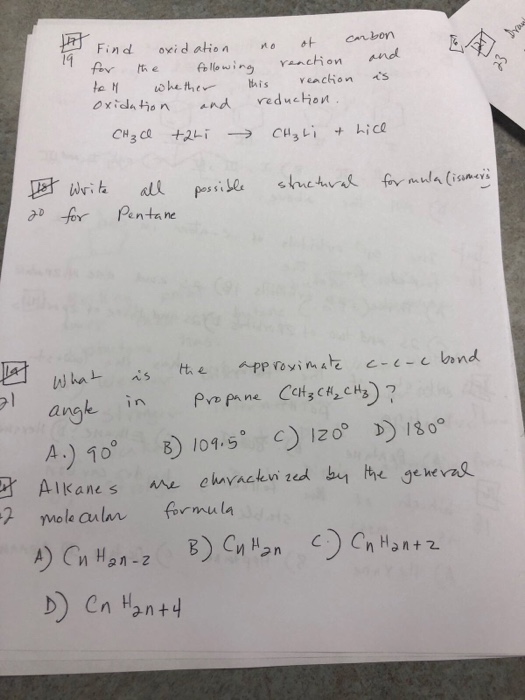 17 Find oxidation no of carbon
19 for the following reaction and
tell whether this reaction is
oxidation and reduction.
CH3Cl + 2Li → CH3Li + LiCl
18 Write all possible structural formula (isomers
20 for Pentane
19 What is the approximate C-C-C bond
21 angle in propane (CH3CH2CH3)?
A.) 90° B) 109.5° C) 120° D) 180°
Alkanes are characterized by the general
22 molecular formula
A) CnH2n-2 B) CnH2n C.) CnH2n+2
D) CnH2n+4